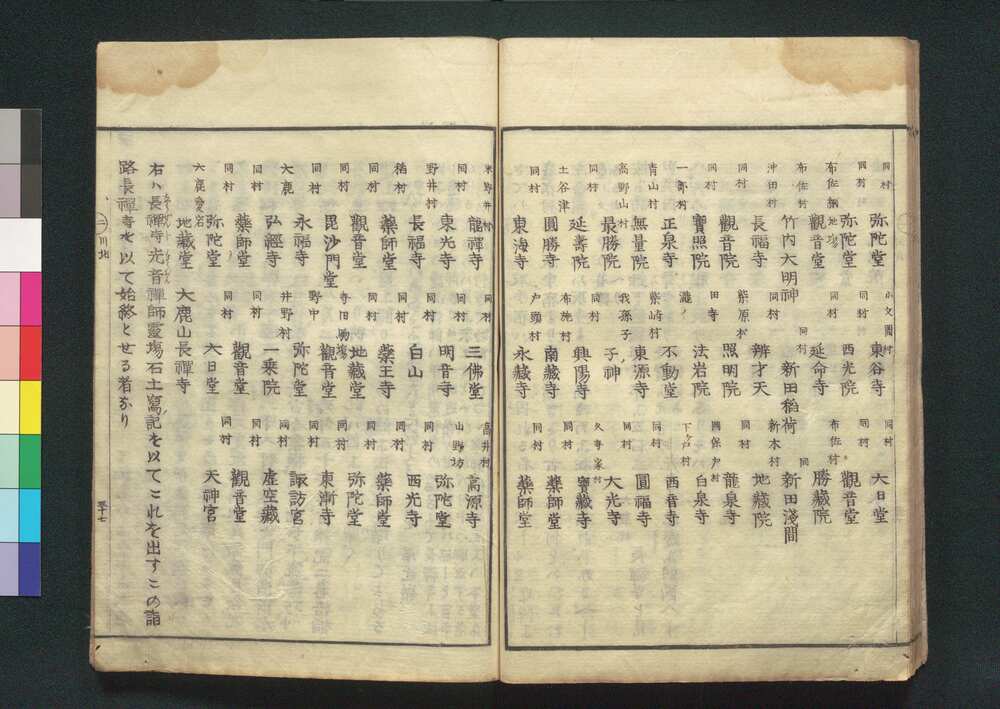 同村 弥陀堂 小文間村 東谷寺 同村 大日堂
同村 弥陀堂 同村 西光院 同村 觀音堂
布佐網地場 觀音堂 同村 延命寺 布佐村 勝藏院
布佐村 竹内大明神 同村 新田稲荷 同 新田淺間
沖田村 長福寺 同村 辨才天 新木村 地藏院
同村 觀音院 柴原村 照明院 同村 龍泉寺
同村 寶照院 田寺 法岩院 白泉寺
一部村 正泉寺 瀧ノ 不動堂 下ヶ戸村 西音寺
青山村 無量院 柴崎村 東源寺 同村 圓福寺
高野山村 最勝院 我孫子 子ノ神 同村 大光寺
同村 延壽院 同村 興陽寺 久寺家村 寶藏寺
土谷津 圓勝寺 布施村 南藏寺 同村 藥師堂
同村 東海寺 戸頭村 永藏寺 同村 藥師堂
米野井村 龍禪寺 同村 三佛堂 高井村 高源寺
同村 東光寺 同村 明音寺 山野坊 弥陀堂
野井村 長福寺 同村 白山 同村 西光寺
稲村 藥師堂 同村 藥王寺 同村 藥師堂
同村 觀音堂 同村 地藏堂 同村 弥陀堂
同村 毘沙門堂 寺田馬場 觀音堂 同村 東漸寺
同村 永福寺 野中 弥陀堂 同村 諏訪宮
大鹿 弘經寺 井野村 一乗院 同村 虚空藏
同村 藥師堂 同村 觀音堂 同村 觀音堂
同村 弥陀堂 同村 大日堂 同村 天神宮
大鹿 地藏堂 大鹿山長禪寺
右ハ長禪寺光音禪師靈場石土寫ノ記を以てこれを出すこの詣
路長禪寺を以て始終とせる者なり
川北